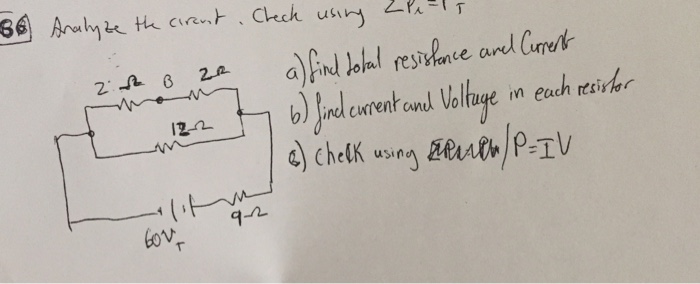 86 Analyze the circuit. Check using ΣPᵢ = P_T
a) find total resistance and Current
2 Ω B 2Ω
b) find current and Voltage in each resistor
12Ω
c) check using / P=IV
60V_T 9Ω